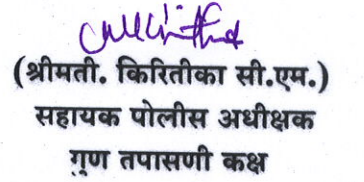 (श्रीमती. किरितीका सी.एम.)
सहायक पोलीस अधीक्षक
गुण तपासणी कक्ष